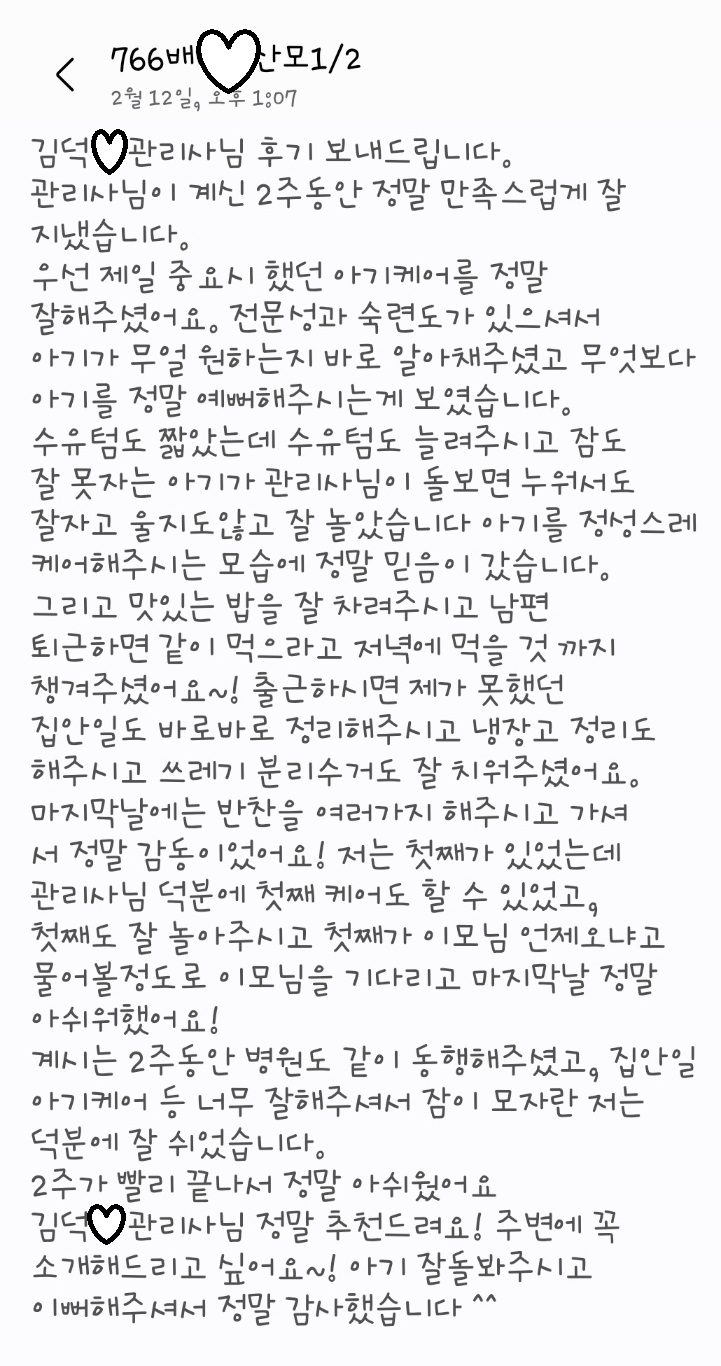 766배♡산모1/2
2월 12일, 오후 1:07
김덕♡관리사님 후기 보내드립니다.
관리사님이 계신 2주동안 정말 만족스럽게 잘
지냈습니다.
우선 제일 중요시 했던 아기케어를 정말
잘해주셨어요. 전문성과 숙련도가 있으셔서
아기가 무얼 원하는지 바로 알아채주셨고 무엇보다
아기를 정말 예뻐해주시는게 보였습니다.
수유텀도 짧았는데 수유텀도 늘려주시고 잠도
잘 못자는 아기가 관리사님이 돌보면 누워서도
잘자고 울지도않고 잘 놀았습니다 아기를 정성스레
케어해주시는 모습에 정말 믿음이 갔습니다.
그리고 맛있는 밥을 잘 차려주시고 남편
퇴근하면 같이 먹으라고 저녁에 먹을 것 까지
챙겨주셨어요~! 출근하시면 제가 못했던
집안일도 바로바로 정리해주시고 냉장고 정리도
해주시고 쓰레기 분리수거도 잘 치워주셨어요.
마지막날에는 반찬을 여러가지 해주시고 가셔
서 정말 감동이었어요! 저는 첫째가 있었는데
관리사님 덕분에 첫째 케어도 할 수 있었고,
첫째도 잘 놀아주시고 첫째가 이모님 언제오냐고
물어볼정도로 이모님을 기다리고 마지막날 정말
아쉬워했어요!
계시는 2주동안 병원도 같이 동행해주셨고, 집안일
아기케어 등 너무 잘해주셔서 잠이 모자란 저는
덕분에 잘 쉬었습니다.
2주가 빨리 끝나서 정말 아쉬웠어요
김덕♡관리사님 정말 추천드려요! 주변에 꼭
소개해드리고 싶어요~! 아기 잘돌봐주시고
이뻐해주셔서 정말 감사했습니다 ^^